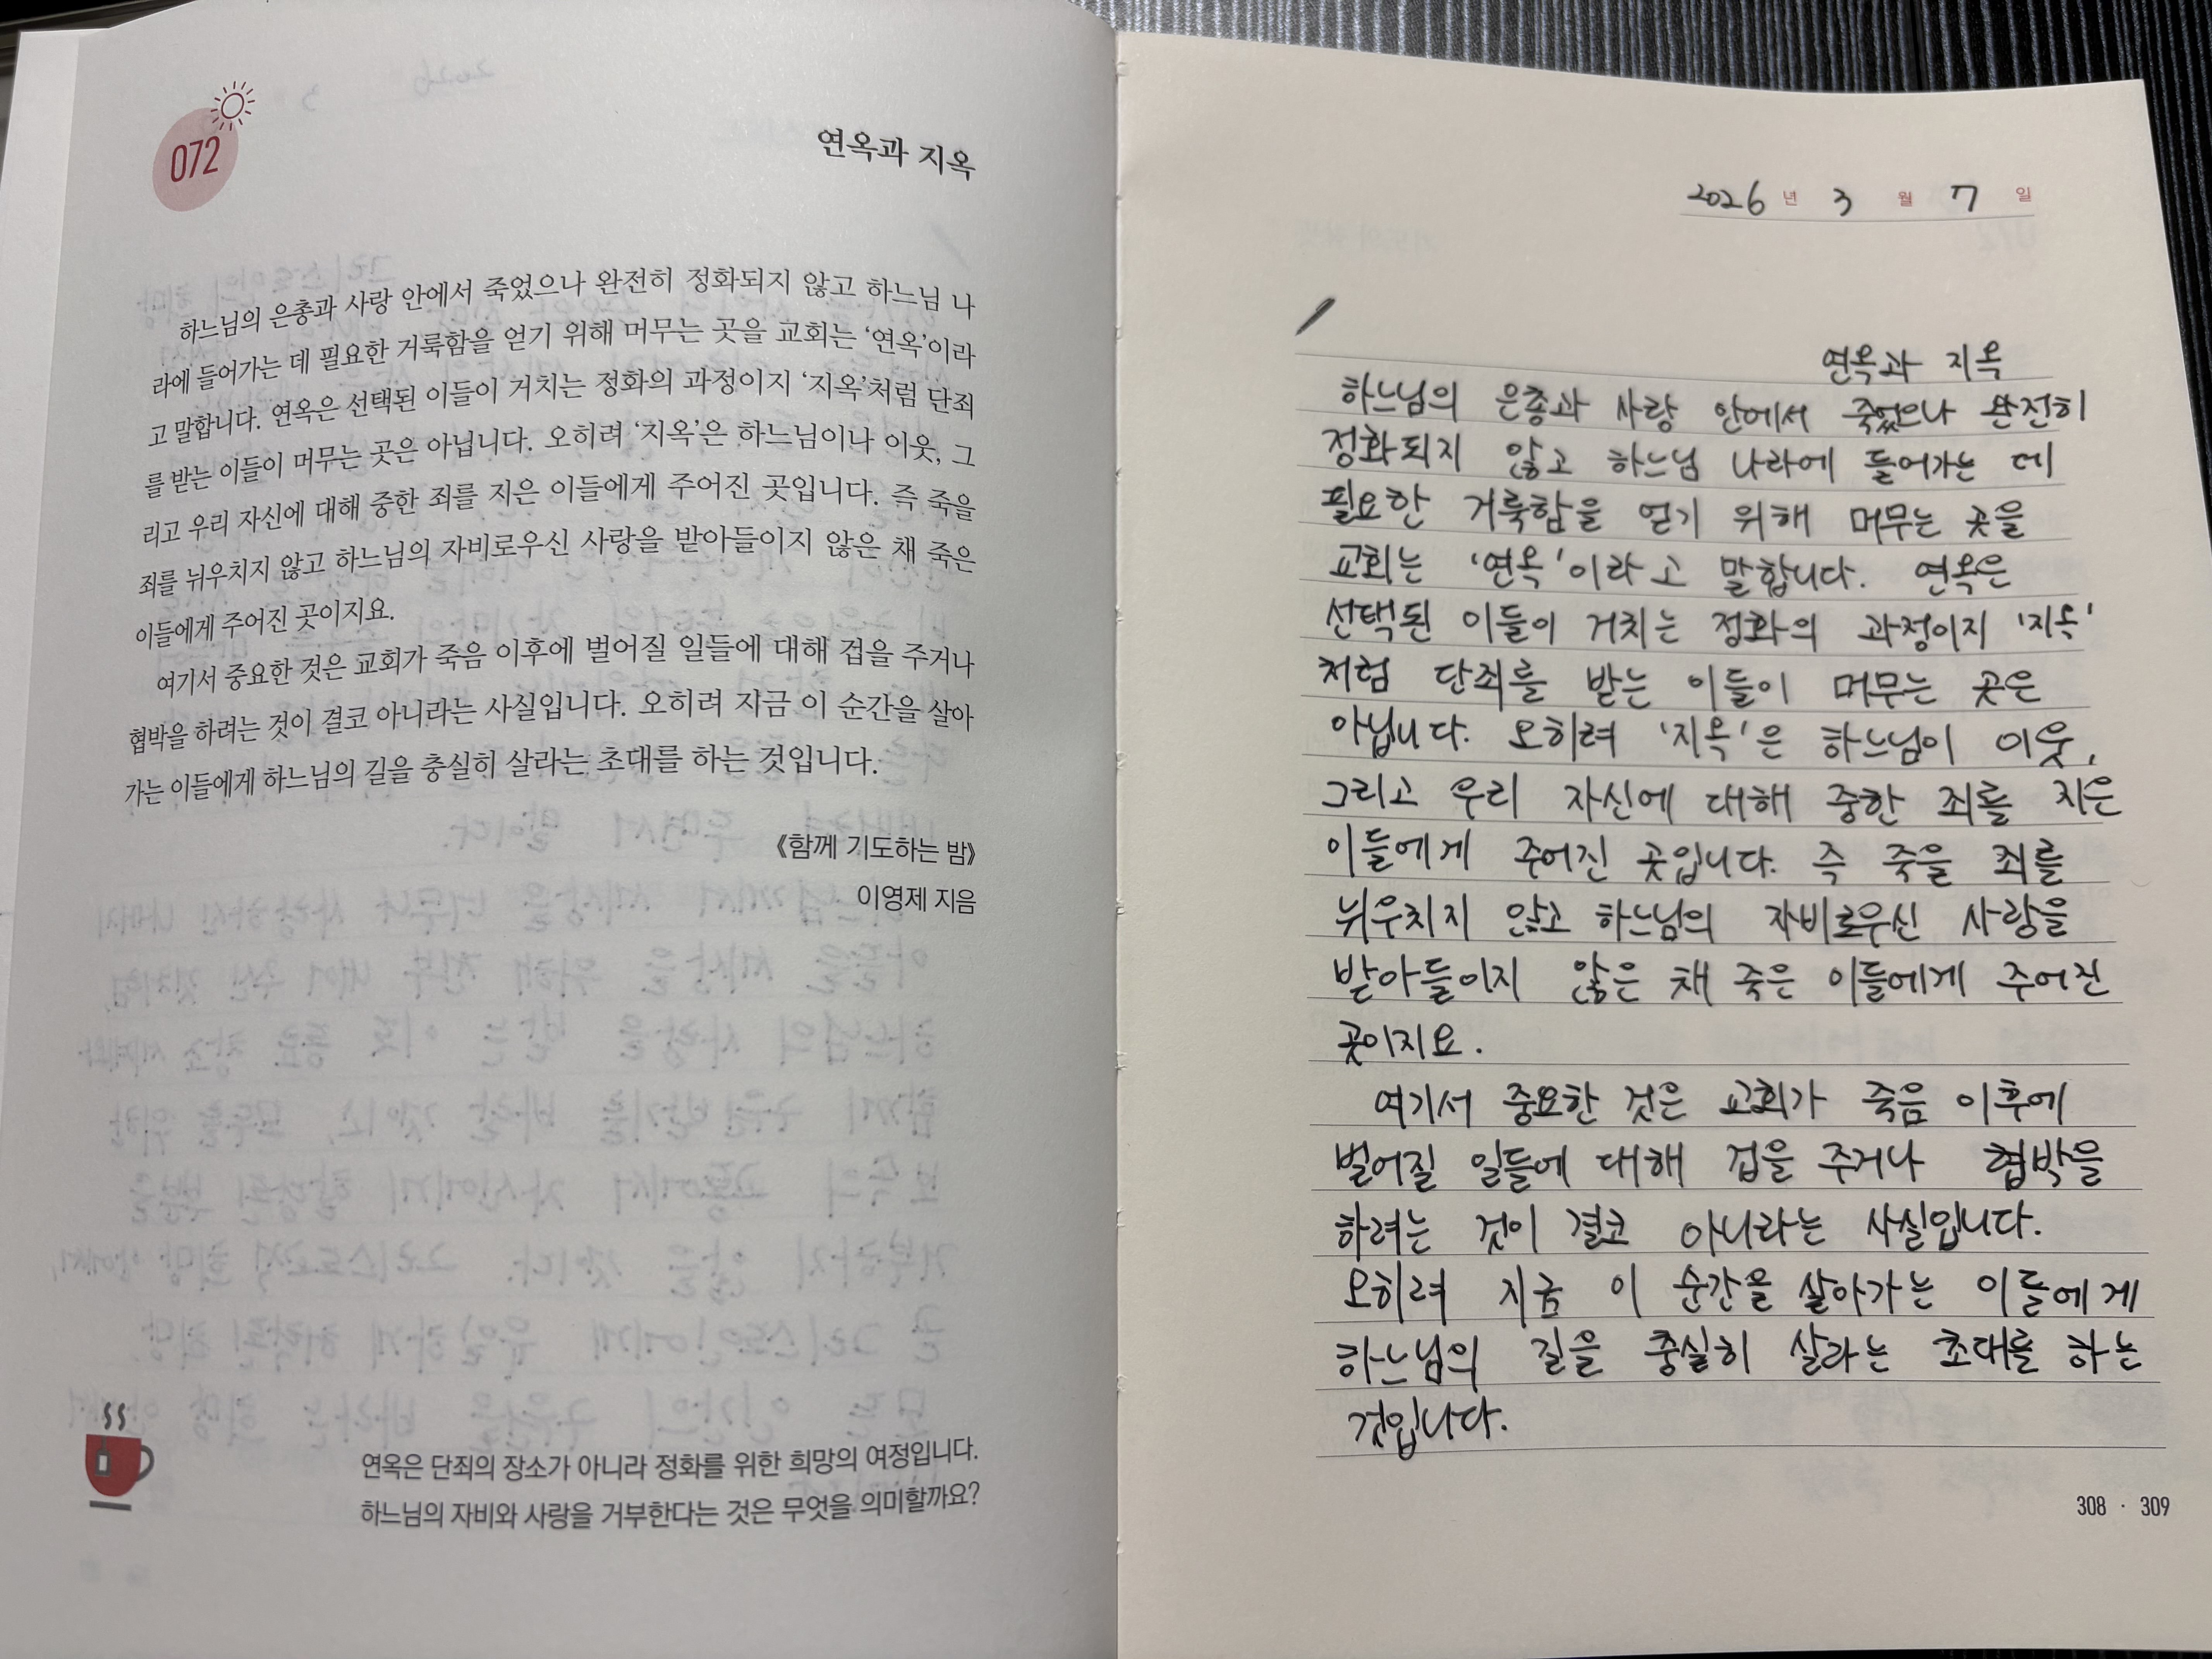 072
연옥과 지옥
하느님의 은총과 사랑 안에서 죽었으나 완전히 정화되지 않고 하느님 나
라에 들어가는 데 필요한 거룩함을 얻기 위해 머무는 곳을 교회는 ‘연옥’이라
고 말합니다. 연옥은 선택된 이들이 거치는 정화의 과정이지 ‘지옥’처럼 단죄
를 받는 이들이 머무는 곳은 아닙니다. 오히려 ‘지옥’은 하느님이나 이웃, 그
리고 우리 자신에 대해 중한 죄를 지은 이들에게 주어진 곳입니다. 즉 죽을
죄를 뉘우치지 않고 하느님의 자비로우신 사랑을 받아들이지 않은 채 죽은
이들에게 주어진 곳이지요.
여기서 중요한 것은 교회가 죽음 이후에 벌어질 일들에 대해 겁을 주거나
협박을 하려는 것이 결코 아니라는 사실입니다. 오히려 지금 이 순간을 살아
가는 이들에게 하느님의 길을 충실히 살라는 초대를 하는 것입니다.
《함께 기도하는 밤》
이영제 지음
연옥은 단죄의 장소가 아니라 정화를 위한 희망의 여정입니다.
하느님의 자비와 사랑을 거부한다는 것은 무엇을 의미할까요?
2026 년 3 월 7 일
연옥과 지옥
하느님의 은총과 사랑 안에서 죽었으나 완전히
정화되지 않고 하느님 나라에 들어가는 데
필요한 거룩함을 얻기 위해 머무는 곳을
교회는 '연옥'이라고 말합니다. 연옥은
선택된 이들이 거치는 정화의 과정이지 '지옥'
처럼 단죄를 받는 이들이 머무는 곳은
아닙니다. 오히려 '지옥'은 하느님이 이웃,
그리고 우리 자신에 대해 중한 죄를 지은
이들에게 주어진 곳입니다. 즉 죽을 죄를
뉘우치지 않고 하느님의 자비로우신 사랑을
받아들이지 않은 채 죽은 이들에게 주어진
곳이지요.
여기서 중요한 것은 교회가 죽음 이후에
벌어질 일들에 대해 겁을 주거나 협박을
하려는 것이 결코 아니라는 사실입니다.
오히려 지금 이 순간을 살아가는 이들에게
하느님의 길을 충실히 살라는 초대를 하는
것입니다.
308 · 309